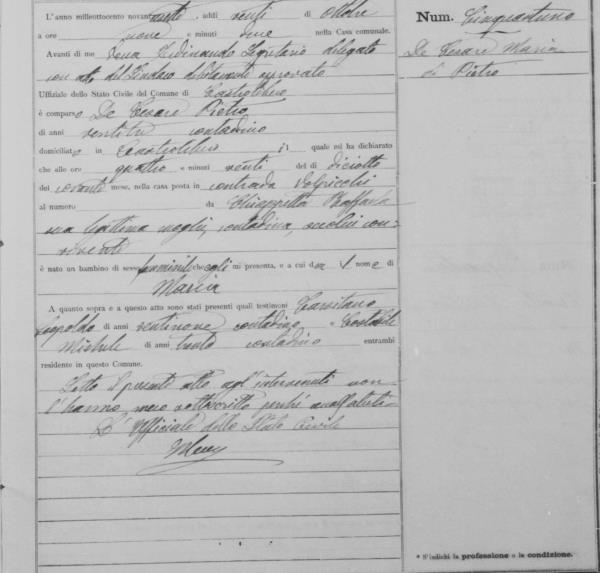 L'anno milleottocento novantasette, addì venti di Ottobre
a ore nove e minuti nella Casa comunale.
Avanti di me Ferdinando Segretario delegato
con atto del Sindaco debitamente approvato
Uffiziale dello Stato Civile del Comune di
è comparso De Cesare Pietro
di anni ventitre contadino
domiciliato in quale mi ha dichiarato
che alle ore quattro e minuti venti del dì diciotto
del corrente mese, nella casa posta in contrada
al numero da Chiappetta Raffaela
sua legittima moglie, contadina, seco lui con-
vivente
è nato un bambino di sesso femminile che egli mi presenta, e a cui dà il nome di
Maria
A quanto sopra e a questo atto sono stati presenti quali testimoni
Leopoldo di anni ventinove contadino e Costabile
Michele di anni trenta contadino entrambi
residente in questo Comune.
Letto il presente atto agl'intervenuti non
l'hanno meco sottoscritto perché analfabeti
L'Uffiziale dello Stato Civile
Num. Cinquantuno
De Cesare Maria
di Pietro
* S'indichi la professione o la condizione.